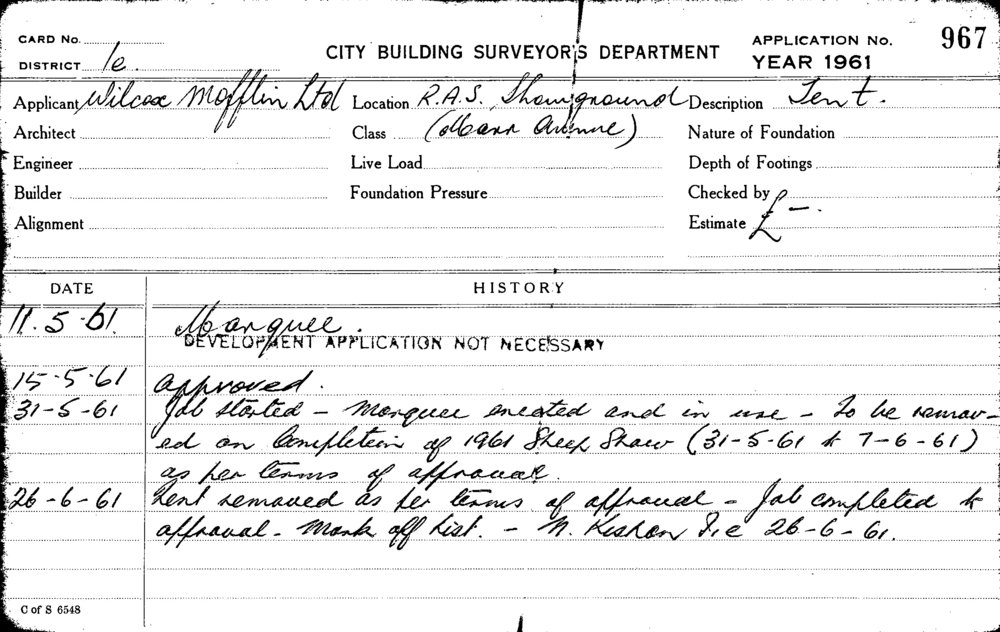 CARD No.
DISTRICT 1e
CITY BUILDING SURVEYOR'S DEPARTMENT
APPLICATION No. 967
YEAR 1961
Applicant Wilcox Mofflin Ltd Location R.A.S. Showground Description Tent.
Architect Class (Marr Avenue) Nature of Foundation
Engineer Live Load Depth of Footings
Builder Foundation Pressure Checked by
Alignment Estimate £ –.
DATE HISTORY
11.5.61. Marquee.
DEVELOPMENT APPLICATION NOT NECESSARY
15-5-61 approved.
31-5-61 Job started – Marquee erected and in use – To be remov-
ed on Completion of 1961 Sheep Show (31-5-61 to 7-6-61)
as per terms of approval.
26-6-61 tent removed as per terms of approval – Job completed to
approval – Mark off list. – N. 26-6-61.
C of S 6548